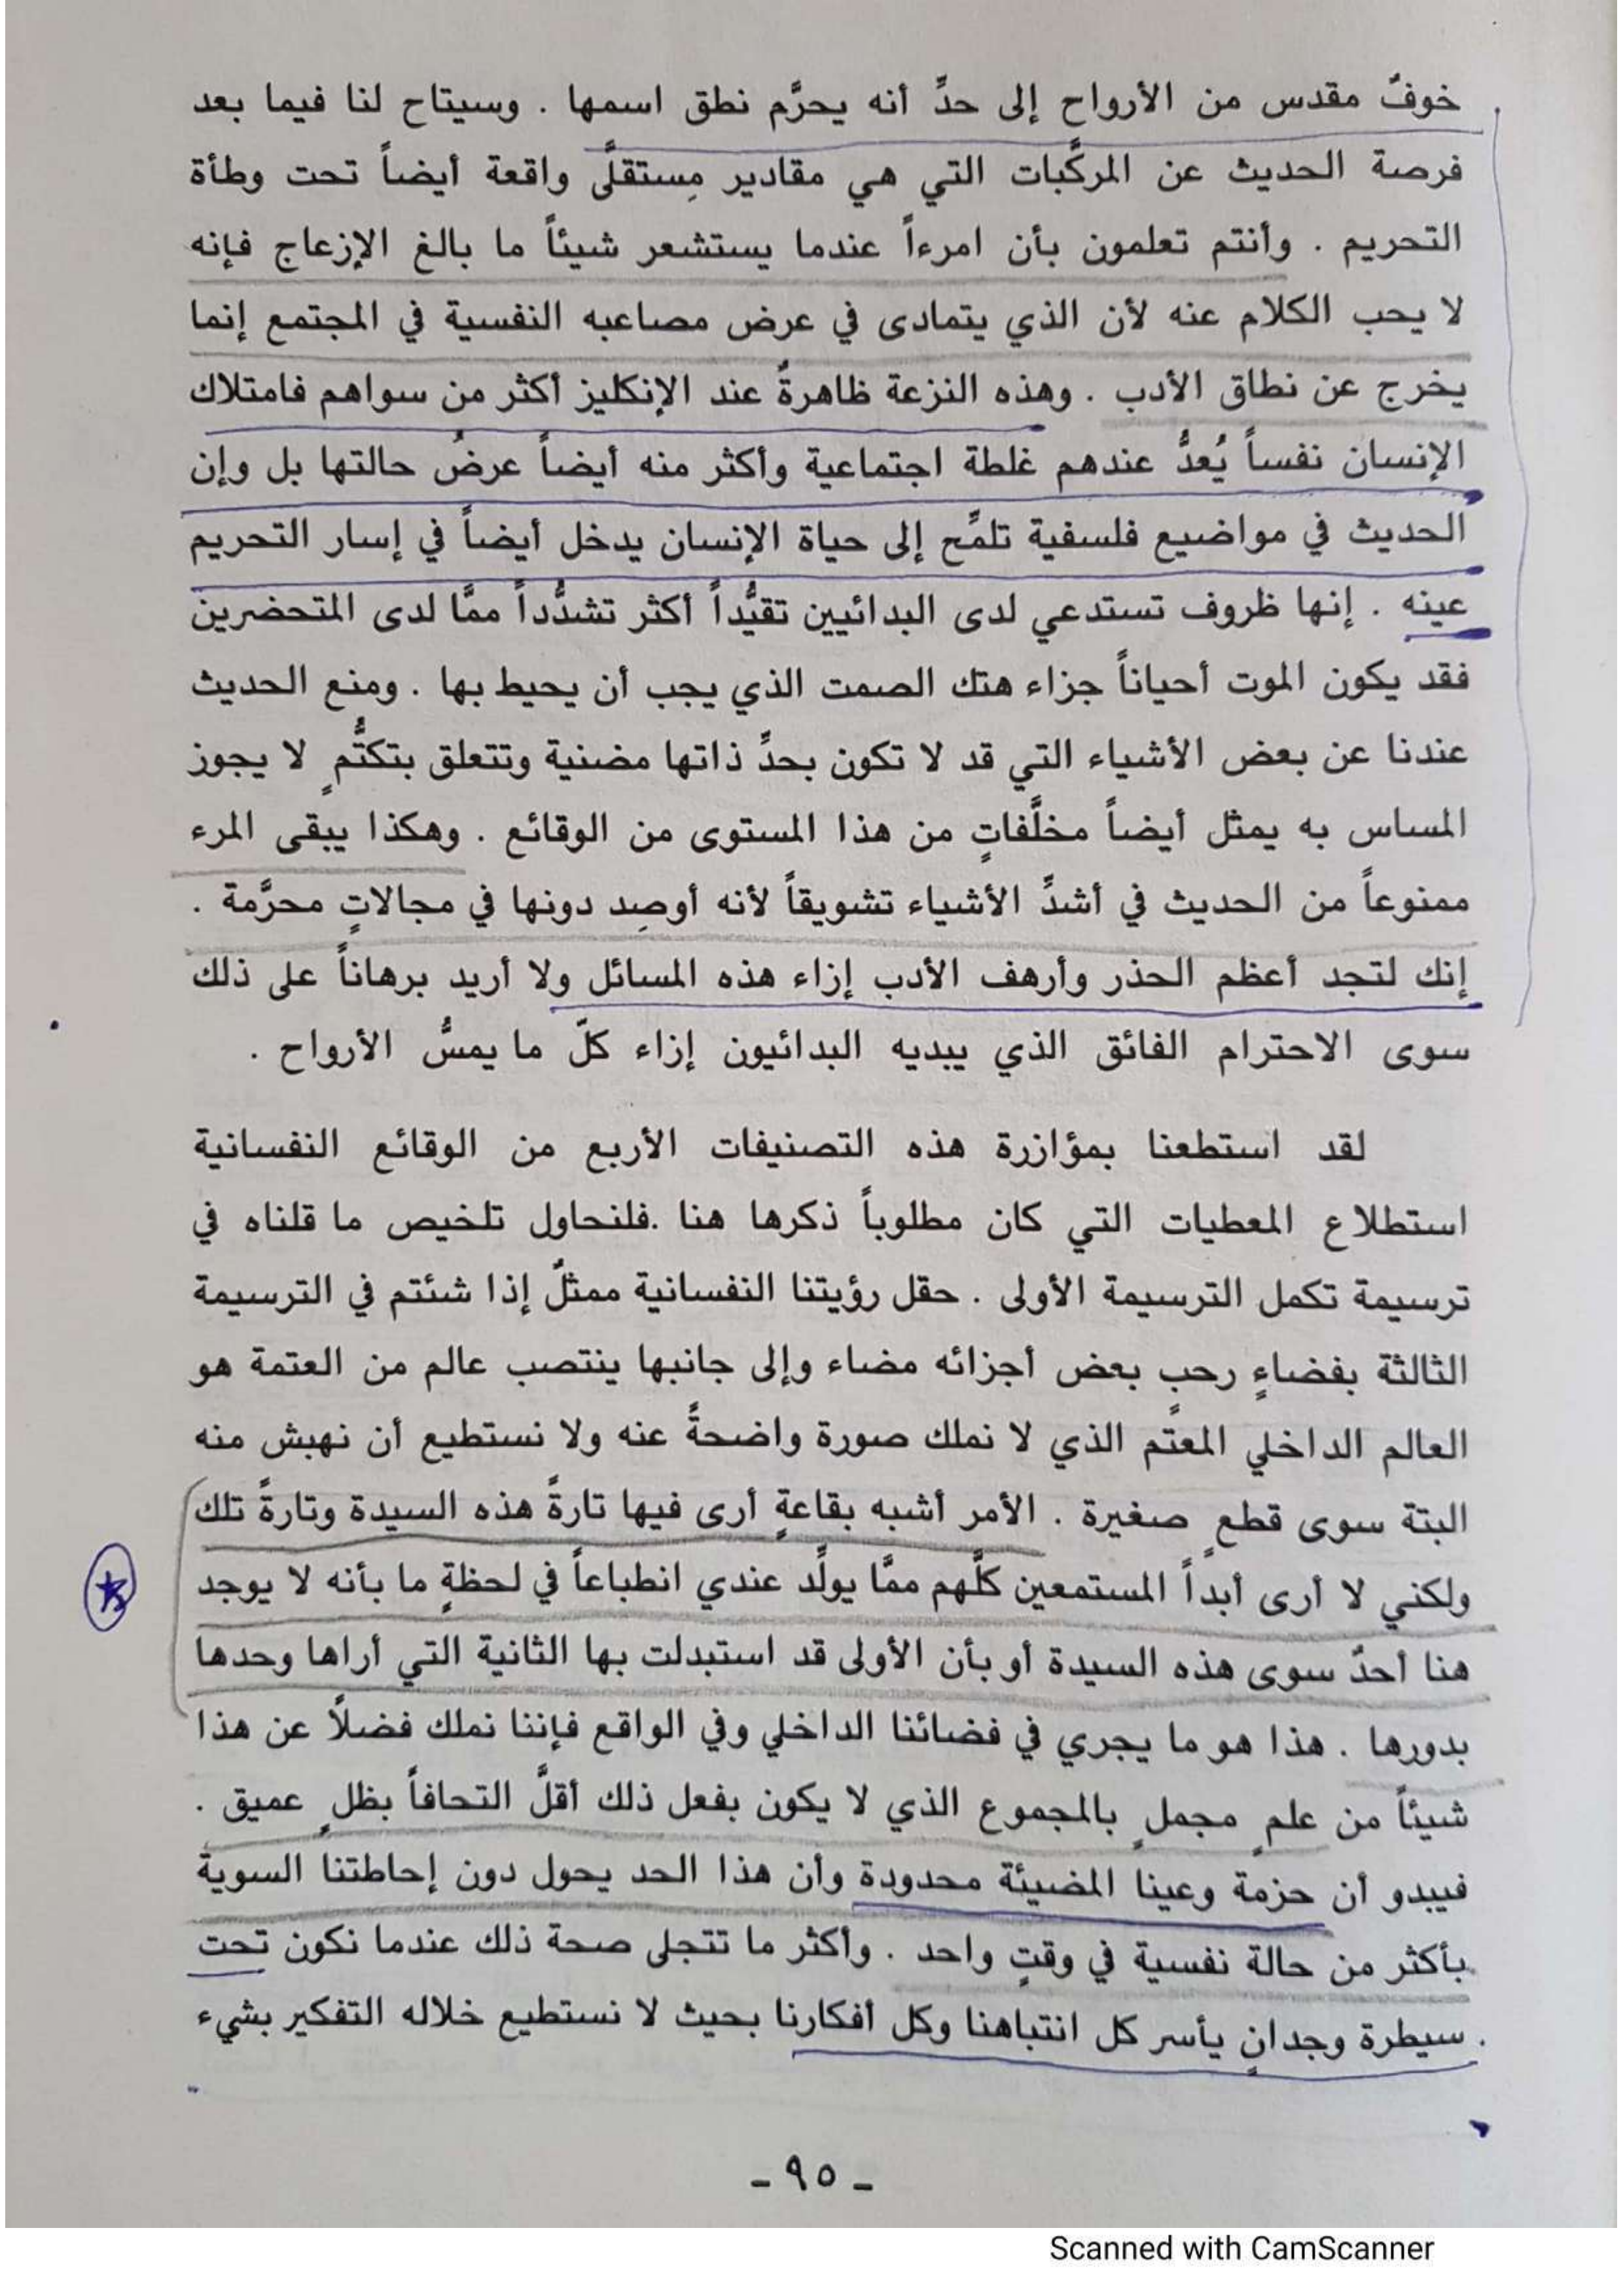 خوفٌ مقدس من الأرواح إلى حدِّ أنه يحرَّم نطق اسمها . وسيتاح لنا فيما بعد
فرصة الحديث عن المركَّبات التي هي مقادير مِستقلَّى واقعة أيضاً تحت وطأة
التحريم . وأنتم تعلمون بأن امرءاً عندما يستشعر شيئاً ما بالغ الإزعاج فإنه
لا يحب الكلام عنه لأن الذي يتمادى في عرض مصاعبه النفسية في المجتمع إنما
يخرج عن نطاق الأدب . وهذه النزعة ظاهرةٌ عند الإنكليز أكثر من سواهم فامتلاك
الإنسان نفساً يُعدُّ عندهم غلطة اجتماعية وأكثر منه أيضاً عرضُ حالتها بل وإن
الحديث في مواضيع فلسفية تلمِّح إلى حياة الإنسان يدخل أيضاً في إسار التحريم
عينه . إنها ظروف تستدعي لدى البدائيين تقيُّداً أكثر تشدُّداً ممَّا لدى المتحضرين
فقد يكون الموت أحياناً جزاء هتك الصمت الذي يجب أن يحيط بها . ومنع الحديث
عندنا عن بعض الأشياء التي قد لا تكون بحدِّ ذاتها مضنية وتتعلق بتكتُّمٍ لا يجوز
المساس به يمثل أيضاً مخلَّفاتٍ من هذا المستوى من الوقائع . وهكذا يبقى المرء
ممنوعاً من الحديث في أشدِّ الأشياء تشويقاً لأنه أوصِد دونها في مجالاتٍ محرَّمة .
إنك لتجد أعظم الحذر وأرهف الأدب إزاء هذه المسائل ولا أريد برهاناً على ذلك
سوى الاحترام الفائق الذي يبديه البدائيون إزاء كلّ ما يمسُّ الأرواح .
لقد استطعنا بمؤازرة هذه التصنيفات الأربع من الوقائع النفسانية
استطلاع المعطيات التي كان مطلوباً ذكرها هنا .فلنحاول تلخيص ما قلناه في
ترسيمة تكمل الترسيمة الأولى . حقل رؤيتنا النفسانية ممثلٌ إذا شئتم في الترسيمة
الثالثة بفضاءٍ رحبٍ بعض أجزائه مضاء وإلى جانبها ينتصب عالم من العتمة هو
العالم الداخلي المعتم الذي لا نملك صورة واضحةً عنه ولا نستطيع أن نهبش منه
البتة سوى قطعٍ صغيرة . الأمر أشبه بقاعةٍ أرى فيها تارةً هذه السيدة وتارةً تلك
ولكني لا أرى أبداً المستمعين كلَّهم ممَّا يولِّد عندي انطباعاً في لحظةٍ ما بأنه لا يوجد
هنا أحدٌ سوى هذه السيدة أو بأن الأولى قد استبدلت بها الثانية التي أراها وحدها
بدورها . هذا هو ما يجري في فضائنا الداخلي وفي الواقع فإننا نملك فضلاً عن هذا
شيئاً من علمٍ مجملٍ بالمجموع الذي لا يكون بفعل ذلك أقلَّ التحافاً بظلٍ عميق .
فيبدو أن حزمة وعينا المضيئة محدودة وأن هذا الحد يحول دون إحاطتنا السوية
بأكثر من حالة نفسية في وقتٍ واحد . وأكثر ما تتجلى صحة ذلك عندما نكون تحت
سيطرة وجدانٍ يأسر كل انتباهنا وكل أفكارنا بحيث لا نستطيع خلاله التفكير بشيء
- ٩٥ -
Scanned with CamScanner